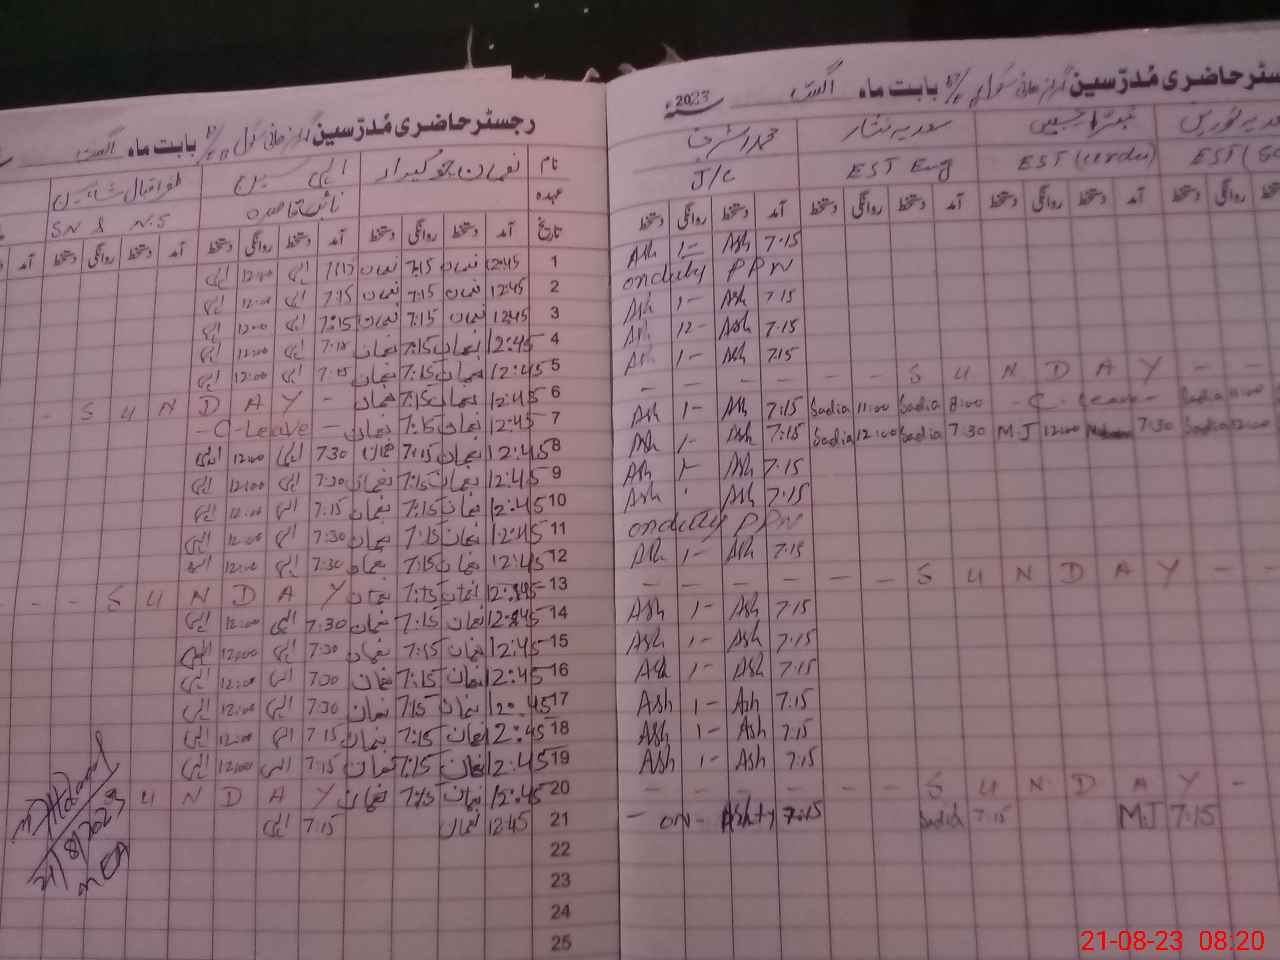 رجسٹر حاضری مُدرّسین گرلز ہائی سکول بابت ماہ اگست
نام نعمان چوکیدار
عہدہ نائب قاصدہ
SN & N.S
تاریخ آمد دستخط روانگی دستخط آمد دستخط روانگی دستخط آمد دستخط روانگی دستخط آمد
1 12:45 نعمان 7:15 نعمان 7:15 الہی 12:00 الہی
2 12:45 نعمان 7:15 نعمان 7:15 الہی 12:00 الہی
3 12:45 نعمان 7:15 نعمان 7:15 الہی 12:00 الہی
4 12:45 نعمان 7:15 نعمان 7:15 الہی 12:00 الہی
5 12:45 نعمان 7:15 نعمان 7:15 الہی 12:00 الہی
6 12:45 نعمان 7:15 نعمان - S U N D A Y -
7 12:45 نعمان 7:15 نعمان - C-Leave -
8 12:45 نعمان 7:15 نعمان 7:30 الہی 12:00 الہی
9 12:45 نعمان 7:15 نعمان 7:30 الہی 12:00 الہی
10 12:45 نعمان 7:15 نعمان 7:15 الہی 12:00 الہی
11 12:45 نعمان 7:15 نعمان 7:30 الہی 12:00 الہی
12 12:45 نعمان 7:15 نعمان 7:30 الہی 12:00 الہی
13 12:45 نعمان 7:15 نعمان - - - S U N D A Y
14 12:45 نعمان 7:15 نعمان 7:30 الہی 12:00 الہی
15 12:45 نعمان 7:15 نعمان 7:30 الہی 12:00 الہی
16 12:45 نعمان 7:15 نعمان 7:30 الہی 12:00 الہی
17 12:45 نعمان 7:15 نعمان 7:30 الہی 12:00 الہی
18 12:45 نعمان 7:15 نعمان 7:15 الہی 12:00 الہی
19 12:45 نعمان 7:15 نعمان 7:15 الہی 12:00 الہی
20 12:45 نعمان 7:15 نعمان U N D A Y
21 12:45 نعمان 7:15 الہی
22
23
24
25
21/8/2023
MEA
رجسٹر حاضری مُدرّسین گرلز ہائی سکول بابت ماہ اگست 2023
محمد اشرف سعدیہ نثار
J/C EST Eng EST (urdu) EST (Sc
آمد دستخط روانگی دستخط آمد دستخط روانگی دستخط آمد دستخط روانگی دستخط
Ash 1- Ash 7:15
onduty PPW
Ash 1- Ash 7:15
Ash 12- Ash 7:15
Ash 1- Ash 7:15
- - - - - - S U N D A Y - -
Ash 1- Ash 7:15 Sadia 11:00 Sadia 8:00 -C-leave- Sadia 11:00
Ash 1- Ash 7:15 Sadia 12:00 Sadia 7:30 M.J 12:00 7:30 Sadia 12:00
Ash 1- Ash 7:15
Ash Ash 7:15
onduty PPW
Ash 1- Ash 7:15
- - - - - - S U N D A Y - -
Ash 1- Ash 7:15
Ash 1- Ash 7:15
Ash 1- Ash 7:15
Ash 1- Ash 7:15
Ash 1- Ash 7:15
Ash 1- Ash 7:15
- - - - - - S U N D A Y -
- ON- 7:15 Sadia 7:15 M.J 7:15
21-08-23 08:20